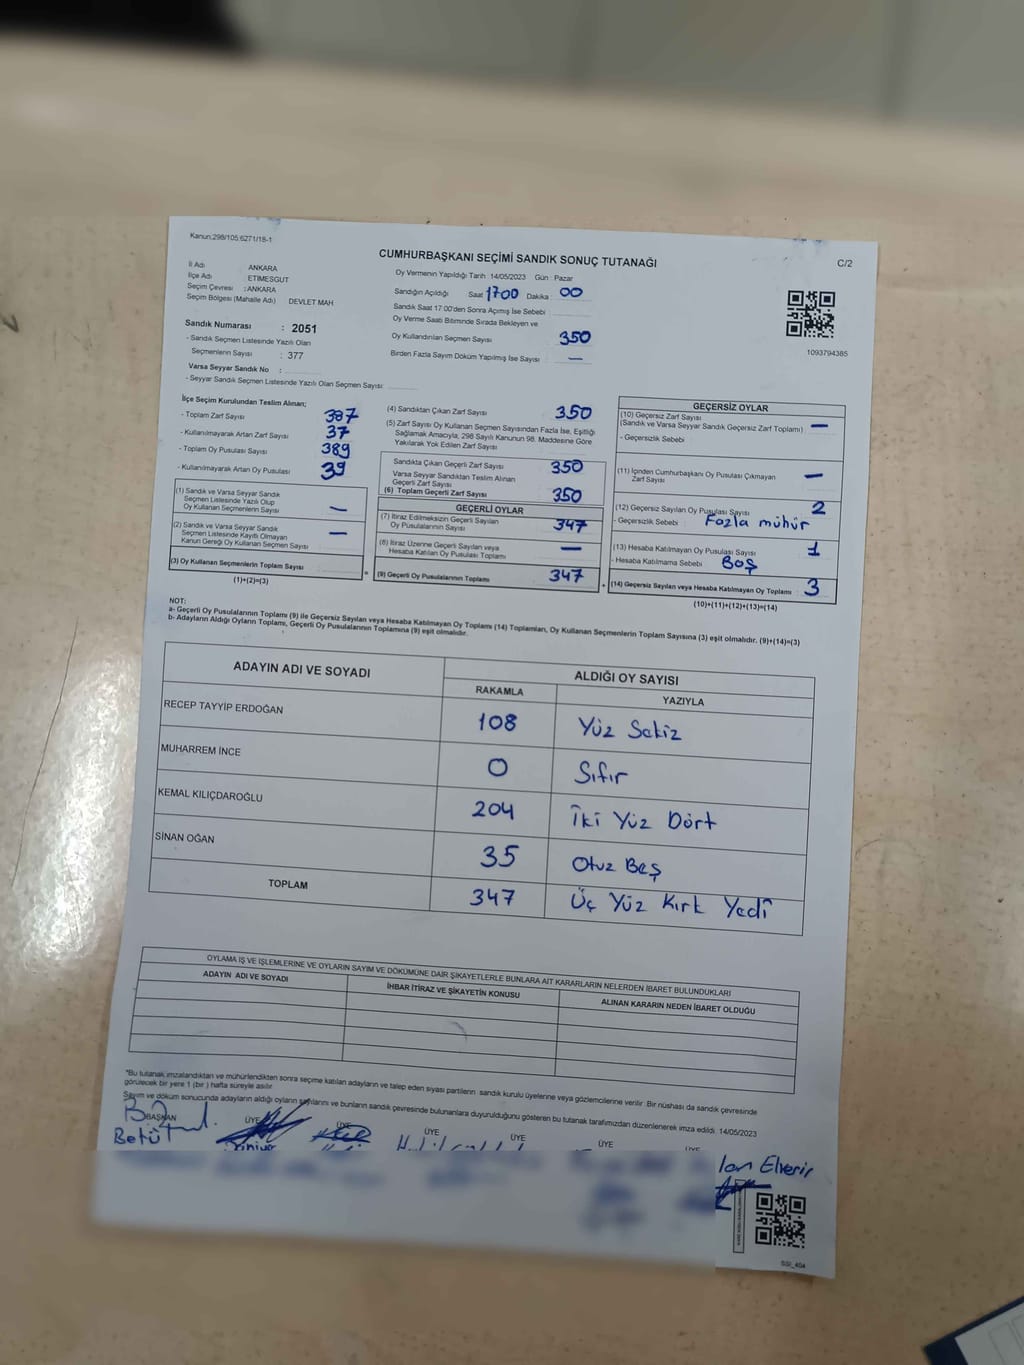 Kanun:298/105.6271/18-1
CUMHURBAŞKANI SEÇİMİ SANDIK SONUÇ TUTANAĞI
C/2
İl Adı : ANKARA
İlçe Adı : ETIMESGUT
Seçim Çevresi : ANKARA
Seçim Bölgesi (Mahalle Adı) DEVLET MAH
Oy Vermenin Yapıldığı Tarih :14/05/2023 Gün : Pazar
Sandığın Açıldığı Saat 1700 Dakika : 00
Sandık Saat 17:00'den Sonra Açımış İse Sebebi :
Oy Verme Saati Bitiminde Sırada Bekleyen ve
Oy Kullandırılan Seçmen Sayısı 350
Birden Fazla Sayım Döküm Yapılmış İse Sayısı : —
1093794385
Sandık Numarası : 2051
- Sandık Seçmen Listesinde Yazılı Olan
Seçmenlerin Sayısı : 377
Varsa Seyyar Sandık No :
- Seyyar Sandık Seçmen Listesinde Yazılı Olan Seçmen Sayısı
İlçe Seçim Kurulundan Teslim Alınan;
- Toplam Zarf Sayısı 387
- Kullanılmayarak Artan Zarf Sayısı 37
- Toplam Oy Pusulası Sayısı 389
- Kullanılmayarak Artan Oy Pusulası 39
(1) Sandık ve Varsa Seyyar Sandık
Seçmen Listesinde Yazılı Olup
Oy Kullanan Seçmenlerin Sayısı —
(2) Sandık ve Varsa Seyyar Sandık
Seçmen Listesinde Kayıtlı Olmayan
Kanun Gereği Oy Kullanan Seçmen Sayısı —
(3) Oy Kullanan Seçmenlerin Toplam Sayısı
(1)+(2)=(3)
(4) Sandıktan Çıkan Zarf Sayısı 350
(5) Zarf Sayısı Oy Kullanan Seçmen Sayısından Fazla İse, Eşitliği
Sağlamak Amacıyla, 298 Sayılı Kanunun 98. Maddesine Göre
Yakılarak Yok Edilen Zarf Sayısı
Sandıkta Çıkan Geçerli Zarf Sayısı 350
Varsa Seyyar Sandıktan Teslim Alınan
Geçerli Zarf Sayısı
(6) Toplam Geçerli Zarf Sayısı 350
GEÇERLİ OYLAR
(7) İtiraz Edilmeksizin Geçerli Sayılan
Oy Pusulalarının Sayısı 347
(8) İtiraz Üzerine Geçerli Sayılan veya
Hesaba Katılan Oy Pusulası Toplamı —
(9) Geçerli Oy Pusulalarının Toplamı 347
GEÇERSİZ OYLAR
(10) Geçersiz Zarf Sayısı
(Sandık ve Varsa Seyyar Sandık Geçersiz Zarf Toplamı) —
- Geçersizlik Sebebi
(11) İçinden Cumhurbaşkanı Oy Pusulası Çıkmayan
Zarf Sayısı —
(12) Geçersiz Sayılan Oy Pusulası Sayısı 2
- Geçersizlik Sebebi Fazla mühür
(13) Hesaba Katılmayan Oy Pusulası Sayısı 1
- Hesaba Katılmama Sebebi Boş
(14) Geçersiz Sayılan veya Hesaba Katılmayan Oy Toplamı 3
(10)+(11)+(12)+(13)=(14)
NOT:
a- Geçerli Oy Pusulalarının Toplamı (9) ile Geçersiz Sayılan veya Hesaba Katılmayan Oy Toplamı (14) Toplamları, Oy Kullanan Seçmenlerin Toplam Sayısına (3) eşit olmalıdır. (9)+(14)=(3)
b- Adayların Aldığı Oyların Toplamı, Geçerli Oy Pusulalarının Toplamına (9) eşit olmalıdır.
ADAYIN ADI VE SOYADI ALDIĞI OY SAYISI
RAKAMLA YAZIYLA
RECEP TAYYİP ERDOĞAN 108 Yüz Sekiz
MUHARREM İNCE 0 Sıfır
KEMAL KILIÇDAROĞLU 204 İki Yüz Dört
SİNAN OĞAN 35 Otuz Beş
TOPLAM 347 Üç Yüz Kırk Yedi
OYLAMA İŞ VE İŞLEMLERİNE VE OYLARIN SAYIM VE DÖKÜMÜNE DAİR ŞİKAYETLERLE BUNLARA AİT KARARLARIN NELERDEN İBARET BULUNDUKLARI
ADAYIN ADI VE SOYADI İHBAR İTİRAZ VE ŞİKAYETİN KONUSU ALINAN KARARIN NEDEN İBARET OLDUĞU
*Bu tutanak imzalandıktan ve mühürlendikten sonra seçime katılan adayların ve talep eden siyasi partilerin sandık kurulu üyelerine veya gözlemcilerine verilir. Bir nüshası da sandık çevresinde
görülecek bir yere 1 (bir) hafta süreyle asılır.
Sayım ve döküm sonucunda adayların aldığı oyların sayılarını ve bunların sandık çevresinde bulunanlara duyurulduğunu gösteren bu tutanak tarafımızdan düzenlenerek imza edildi. 14/05/2023
BAŞKAN ÜYE ÜYE ÜYE ÜYE ÜYE ÜYE
Betül
Elverir
SSI_404